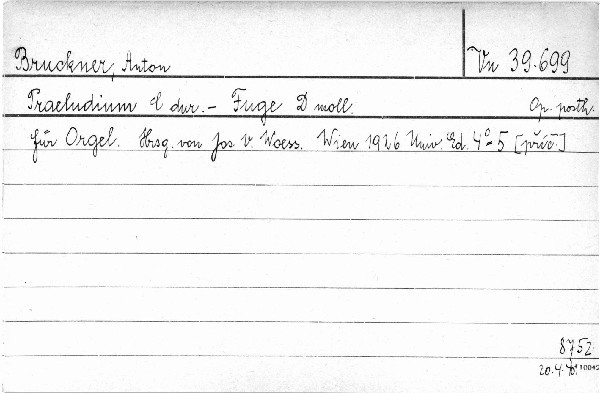 Bruckner, Anton
Vn 39.699
Praeludium C dur. - Fuge D moll. Op. posth.
für Orgel. Hrsg. von Jos. v. Woess. Wien 1926 Univ. Ed. 4° 5 [příč.]
8752
20.4. 10042